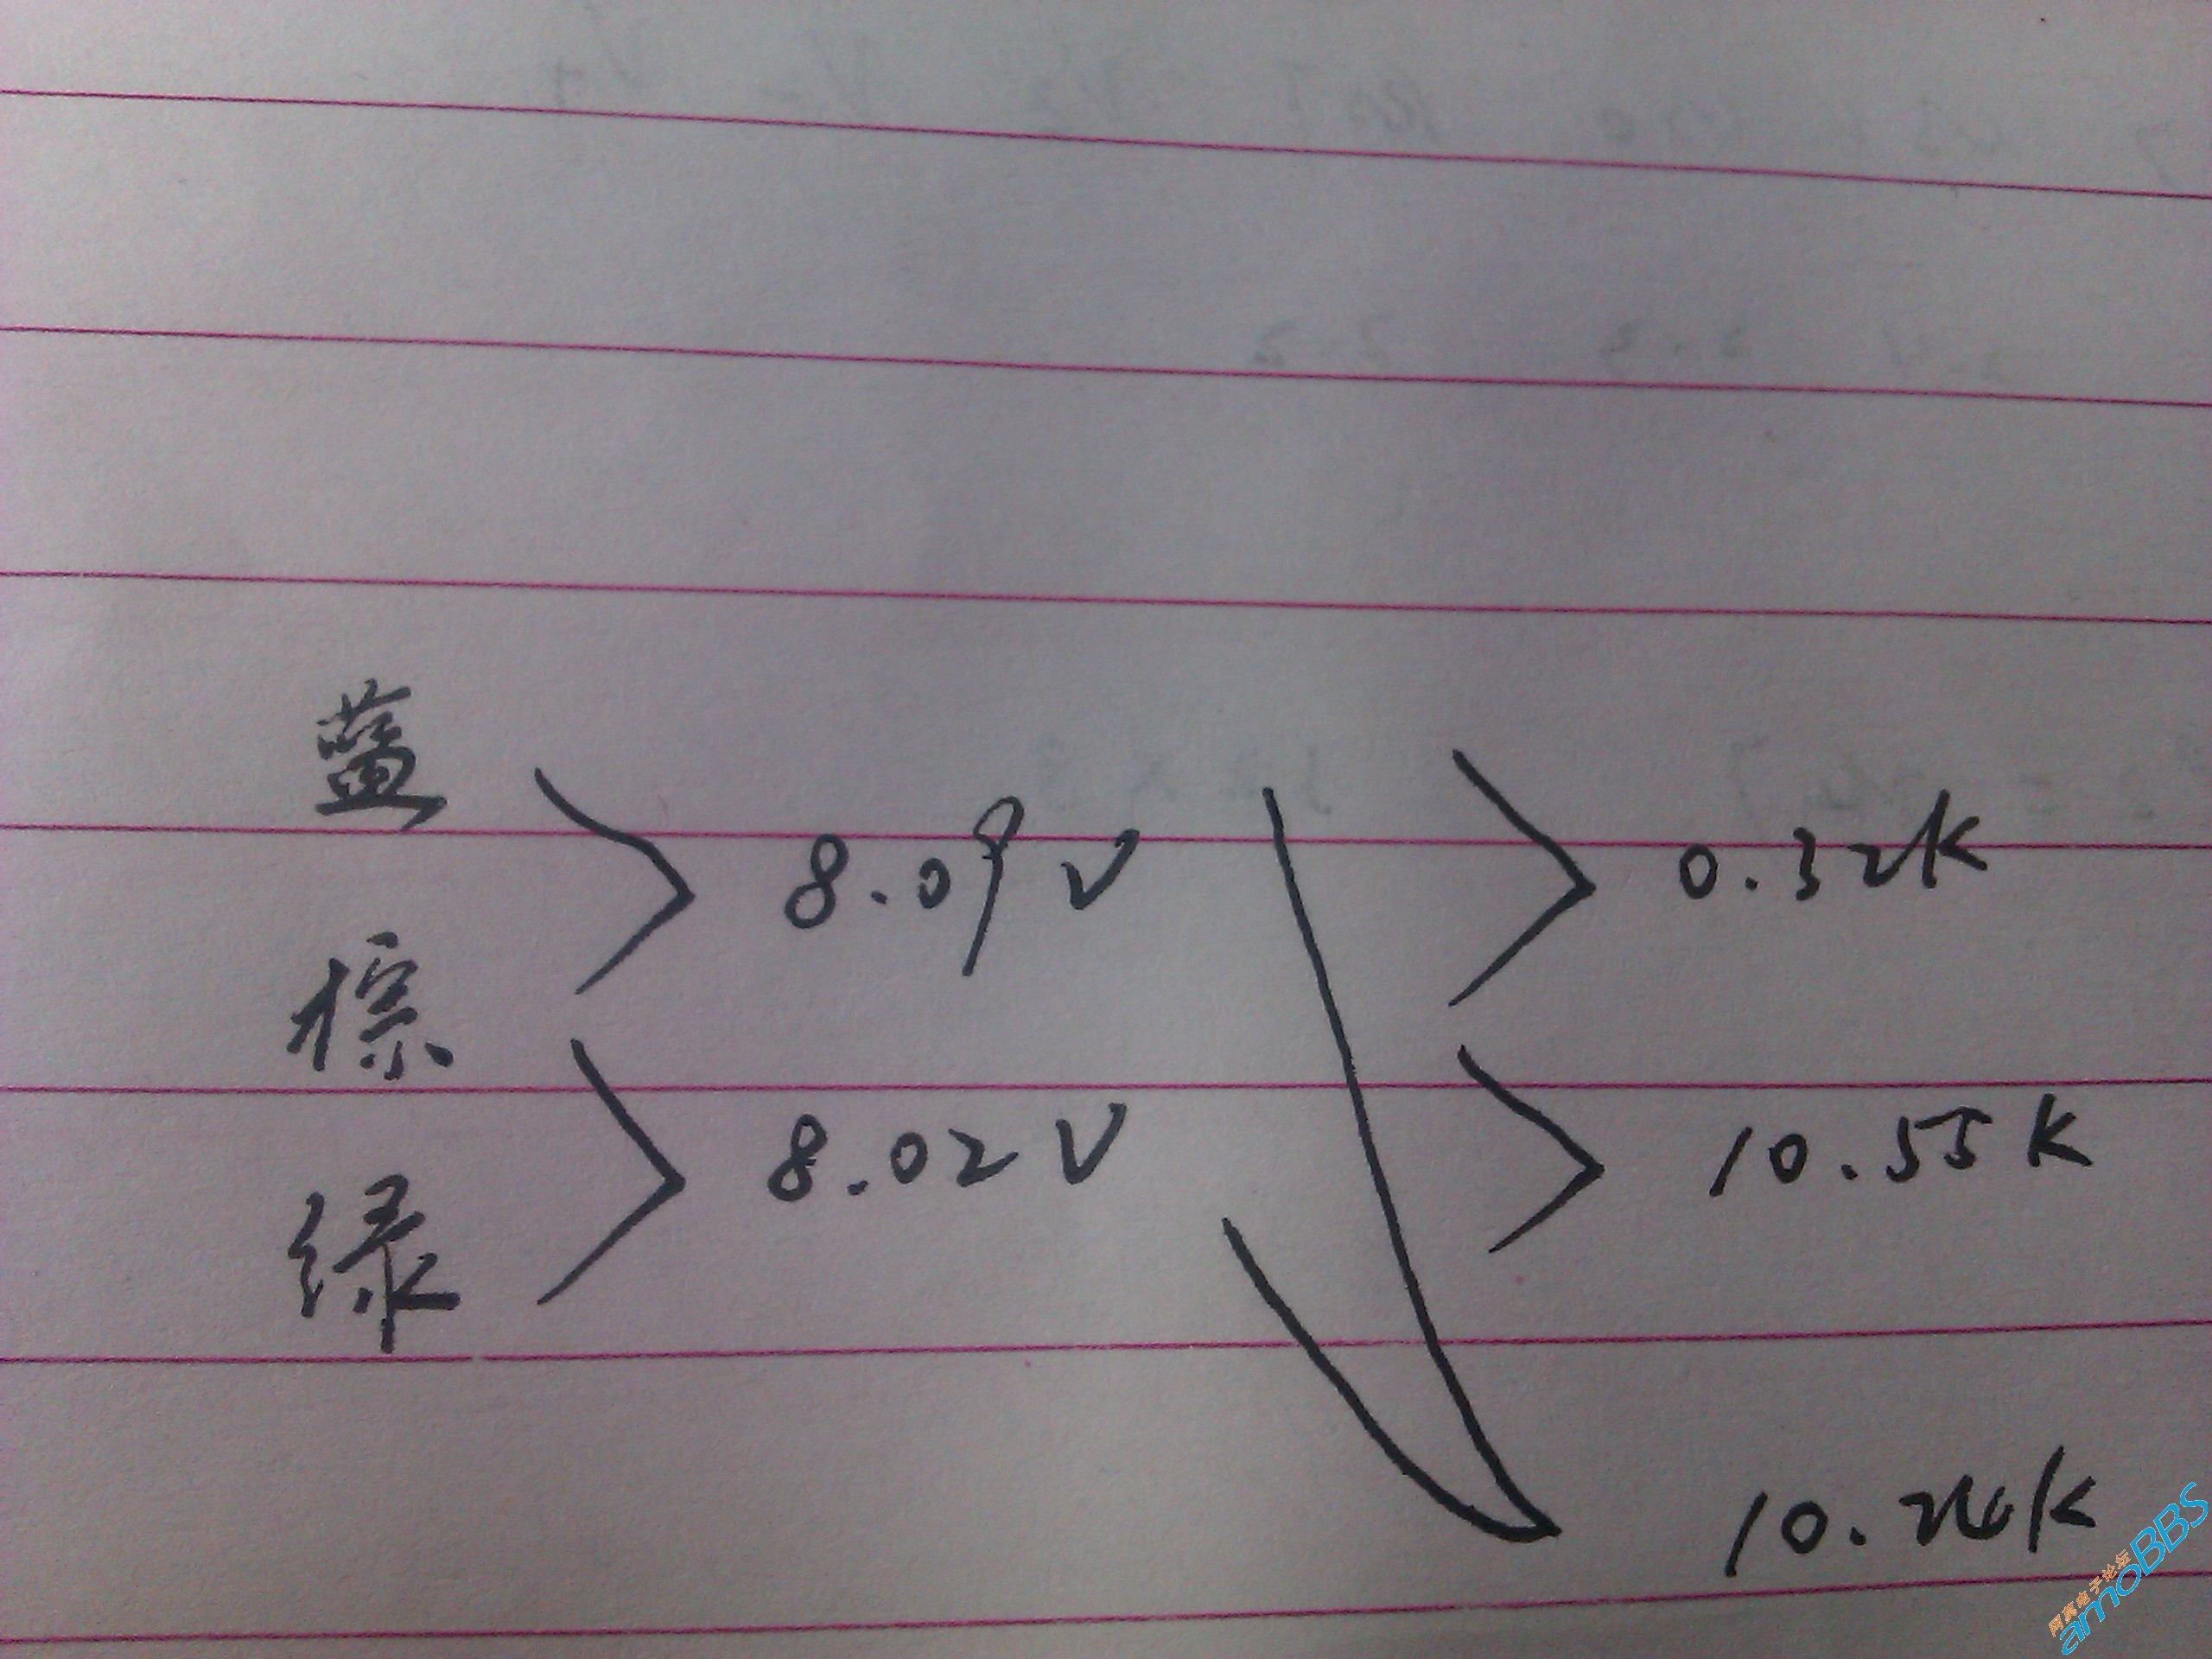 蓝
8.09V 0.32K
棕
8.02V 10.55K
绿
10.26K
阿莫电子论坛
amoBBS